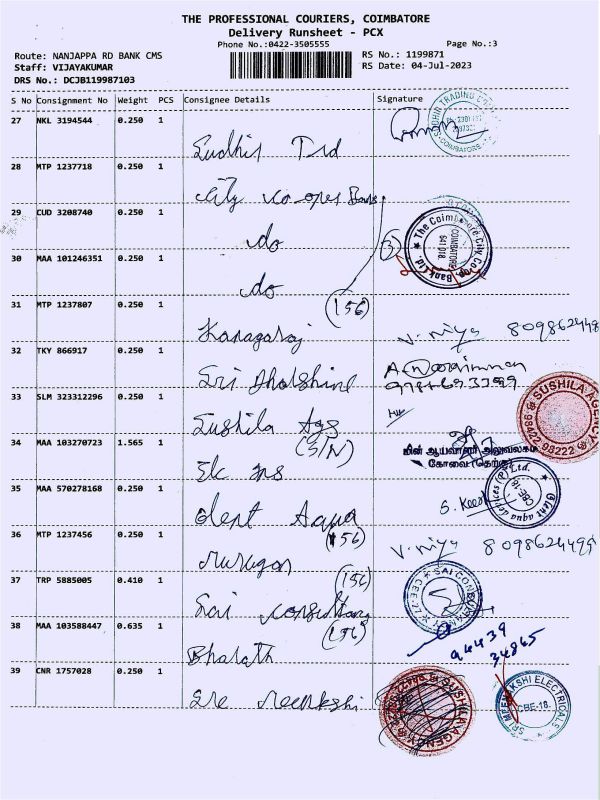 THE PROFESSIONAL COURIERS, COIMBATORE
Delivery Runsheet - PCX
Phone No.:0422-3505555
Page No.:3
Route: NANJAPPA RD BANK CMS
RS No.: 1199871
Staff: VIJAYAKUMAR
RS Date: 04-Jul-2023
DRS No.: DCJB119987103
S No Consignment No Weight PCS Consignee Details Signature
27 NKL 3194544 0.250 1
Sudhir Trd
28 MTP 1237718 0.250 1
City co-oper Bank
29 CUD 3208740 0.250 1
do
The Coimbatore City Co.op. Bank Ltd.
COIMBATORE
641 018
30 MAA 101246351 0.250 1
do
(156)
31 MTP 1237807 0.250 1
Kanagaraj
V. niya
32 TKY 866917 0.250 1
Sri
33 SLM 323312296 0.250 1
Sushila Ags
(S/N)
SUSHILA AGENCY
98422 98222
34 MAA 103270723 1.565 1
மின் ஆய்வாளர் அலுவலகம்
கோவை (தெற்கு)
35 MAA 570278168 0.250 1
Glent Aqua
(156)
CBE-18
36 MTP 1237456 0.250 1
Murugan
(156)
V. niya 8098624495
37 TRP 5885005 0.410 1
Sai Consultancy
(156)
SAI CONSULTANCY
38 MAA 103588447 0.635 1
Bharath
94439
34865
39 CNR 1757028 0.250 1
Sre Meenkshi
SUSHILA AGENCY
SRI MEENAKSHI ELECTRICALS
CBE-18